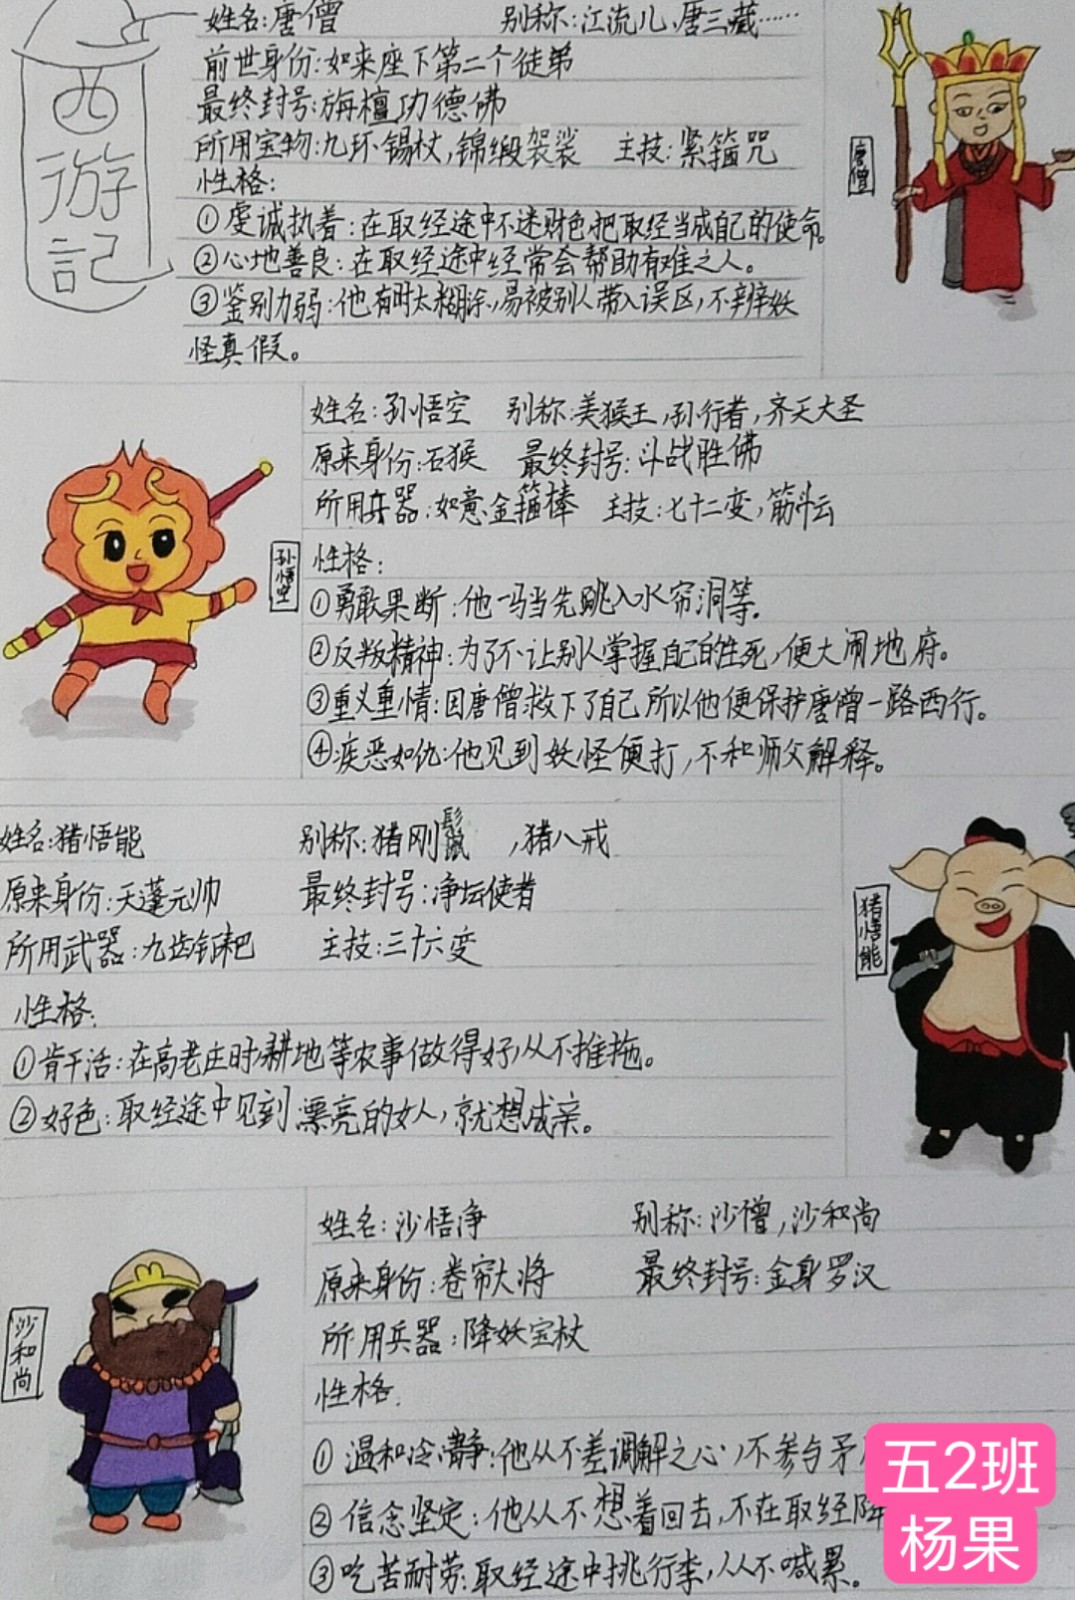 西游記
姓名:唐僧 别称:江流儿、唐三藏……
前世身份:如来座下第二个徒弟
最终封号:旃檀功德佛
所用宝物:九环锡杖,锦缎袈裟 主技:紧箍咒
性格:
①虔诚执着:在取经途中不迷财色,把取经当成自己的使命。
②心地善良:在取经途中经常会帮助有难之人。
③鉴别力弱:他有时太糊涂,易被别人带入误区,不辨妖
怪真假。
唐僧
姓名:孙悟空 别称:美猴王,孙行者,齐天大圣
原来身份:石猴 最终封号:斗战胜佛
所用兵器:如意金箍棒 主技:七十二变,筋斗云
性格:
①勇敢果断:他一马当先跳入水帘洞等。
②反叛精神:为了不让别人掌握自己的生死,便大闹地府。
③重义重情:因唐僧救下了自己所以他便保护唐僧一路西行。
④疾恶如仇:他见到妖怪便打,不和师父解释。
孙悟空
姓名:猪悟能 别称:猪刚鬣,猪八戒
原来身份:天蓬元帅 最终封号:净坛使者
所用武器:九齿钉耙 主技:三十六变
性格:
①肯干活:在高老庄时,耕地等农事做得好,从不推拖。
②好色:取经途中见到漂亮的女人,就想成亲。
猪悟能
姓名:沙悟净 别称:沙僧,沙和尚
原来身份:卷帘大将 最终封号:金身罗汉
所用兵器:降妖宝杖
性格:
①温和冷静:他从不差调解之心,不参与矛
②信念坚定:他从不想着回去,不在取经
③吃苦耐劳:取经途中挑行李,从不喊累。
沙和尚
五2班
杨果